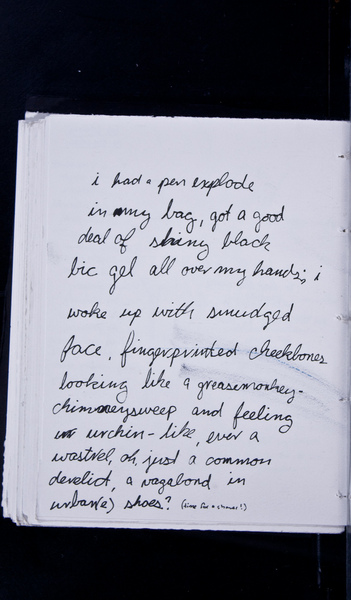 i had a pen explode
in my bag, got a good
deal of shiny black
bic gel all over my hands; i
woke up with smudged
face, fingerprinted cheekbones
looking like a greasemonkey-
chimneysweep and feeling
urchin-like, ever a
wastrel, oh, just a common
derelict, a vagabond in
urban(e) shoes? (time for a shower!)